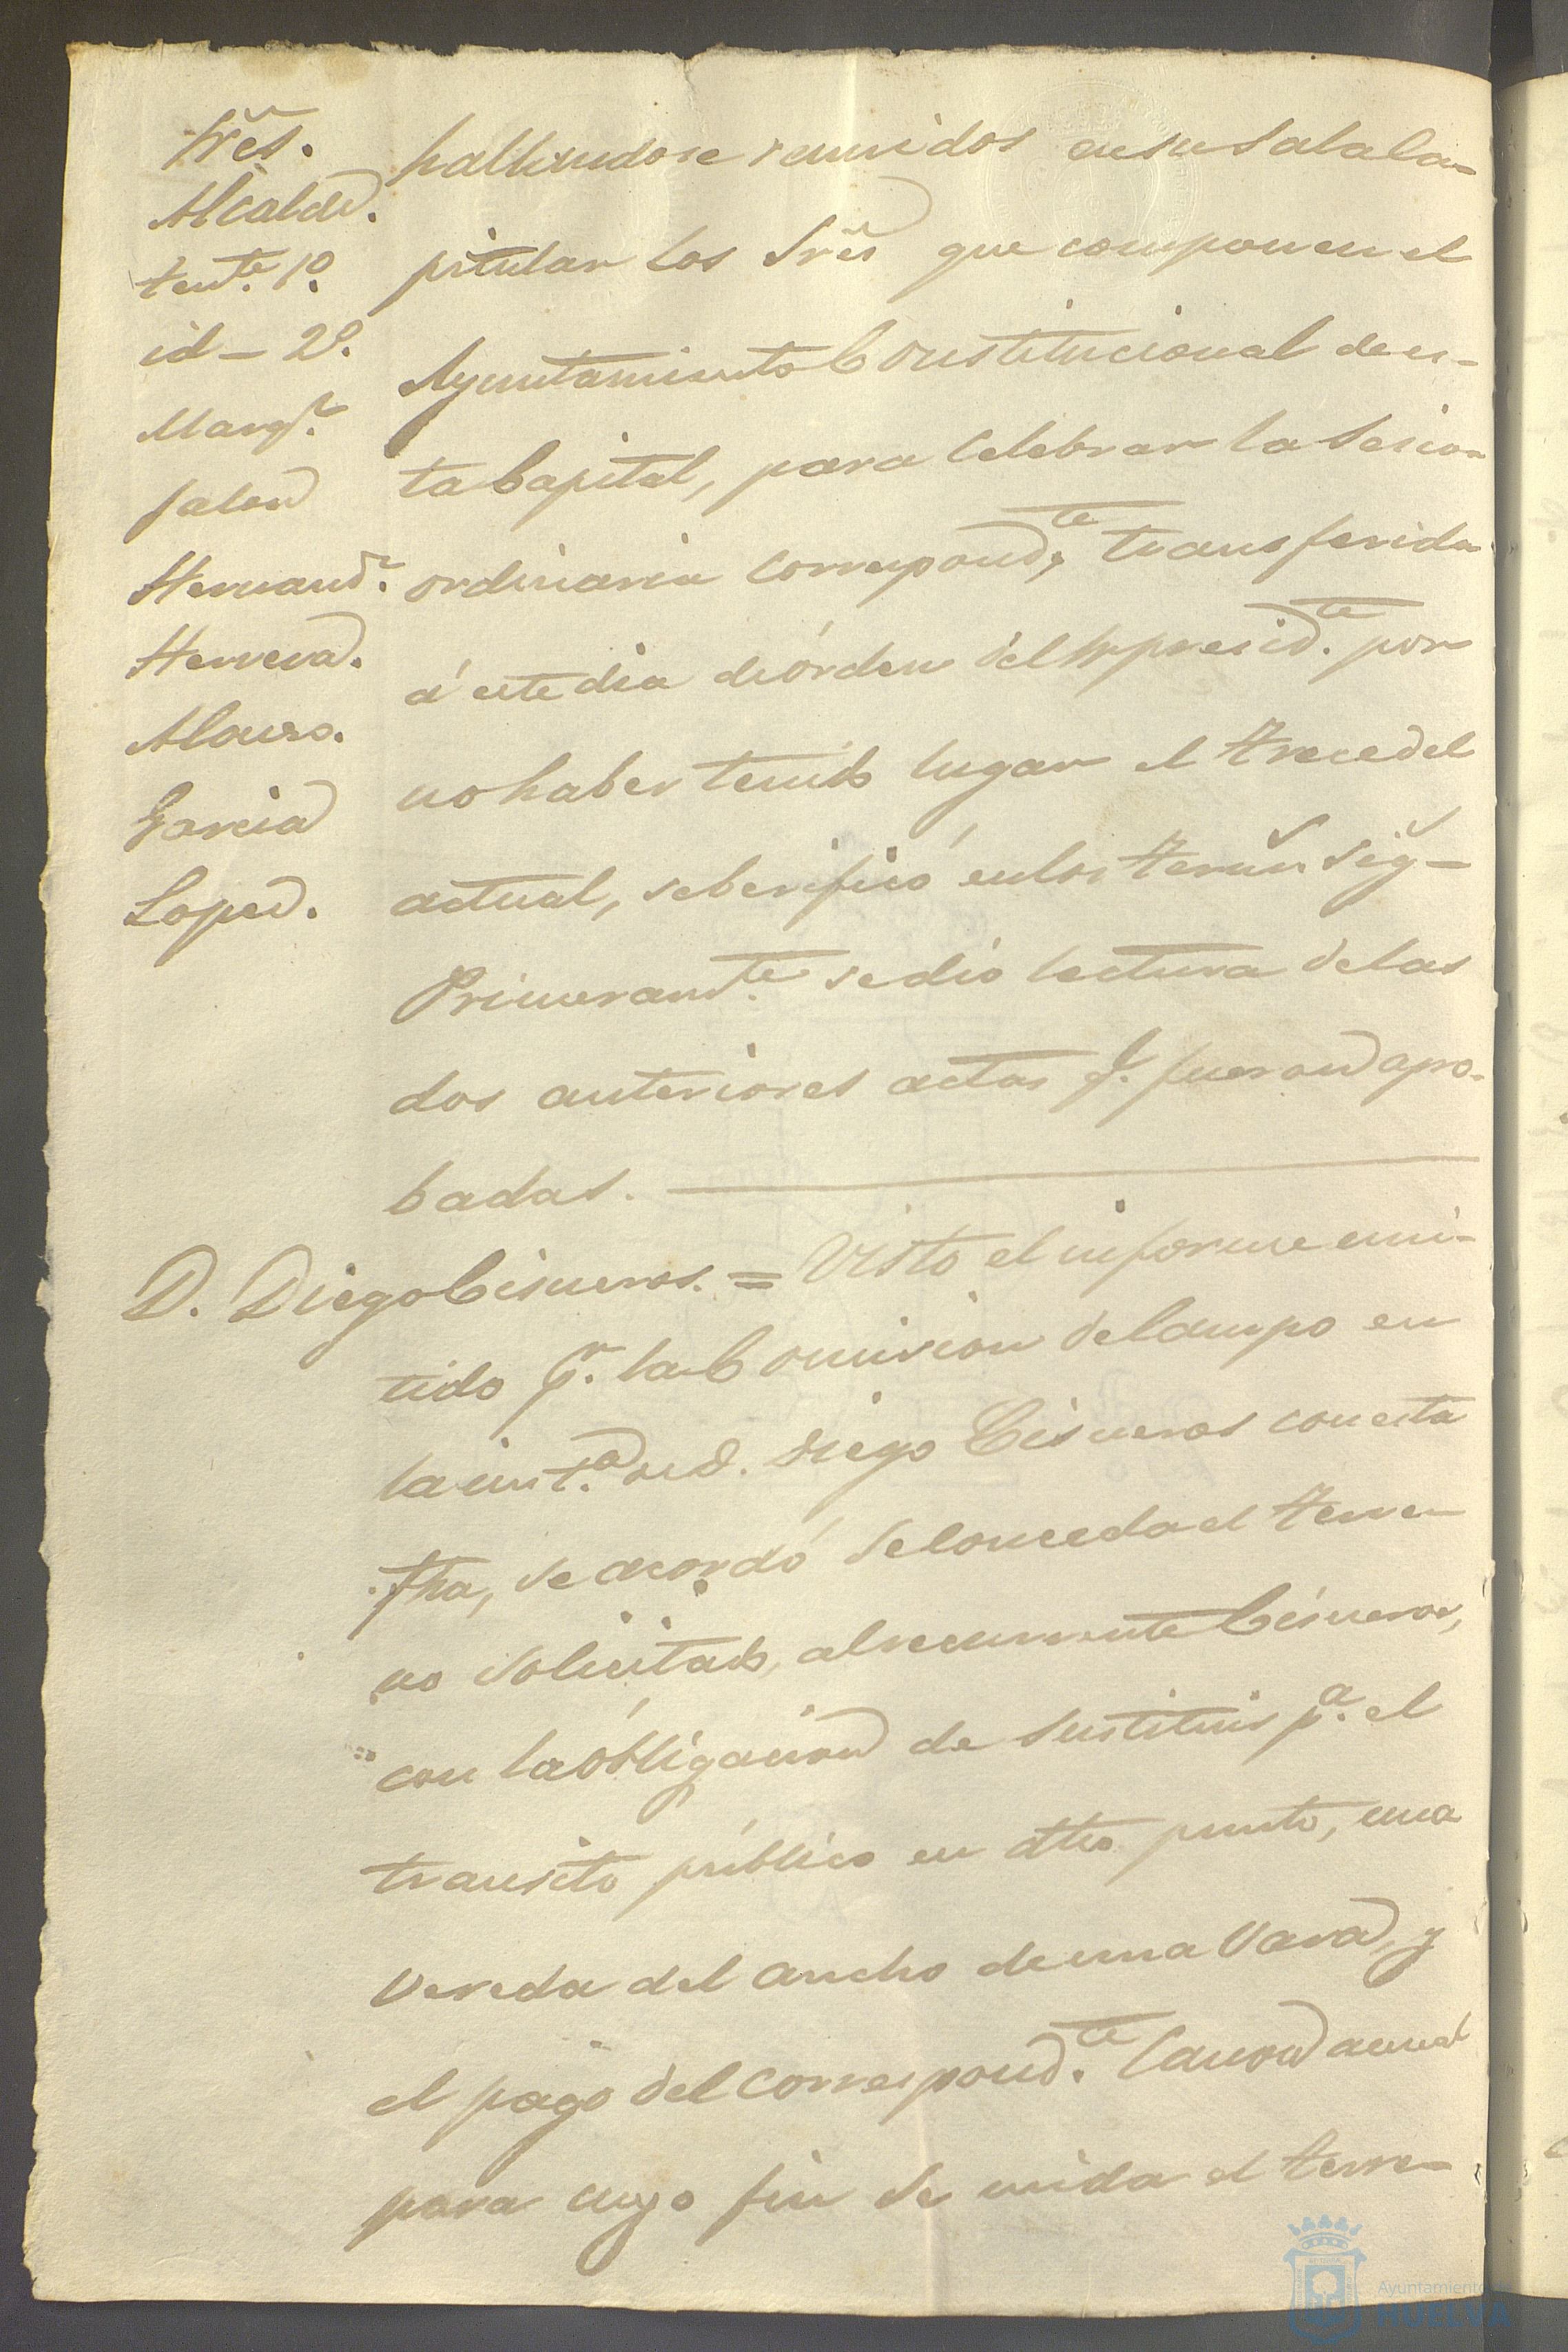 Sres.
Alcalde.
tente. 1º.
id - 2º.
Marqz.
Jalon
Hernandz.
Herrera.
Alonso.
Garcia
Lopez.
hallandose reunidos en su Sala Ca-
pitular los Sres que componen el
Ayuntamiento Constitucional de es-
ta Capital, para Celebrar la Sesion
ordinaria correspondte. transferida
á este dia de órden del Sr presidte. por
no haber tenido lugar el trece del
actual, se berificó en los termns sig-
Primeramte. se dió lectura de las
dos anteriores actas q. fueron apro-
badas.
D. Diego Cisneros. = Visto el informe emi-
tido pr. la Comision del campo en
la insta. de D. Diego Cisneros con esta
fha, se acordó Se conceda el terre-
no Solicitado, al recurrente Cisneros,
con la obligacion de Sustituir pa. el
transito público en otro punto, una
Vereda del ancho de una Vara, y
el pago del correspondte. Canon anual
para cuyo fin Se mida el terre-
Ayuntamiento
HUELVA